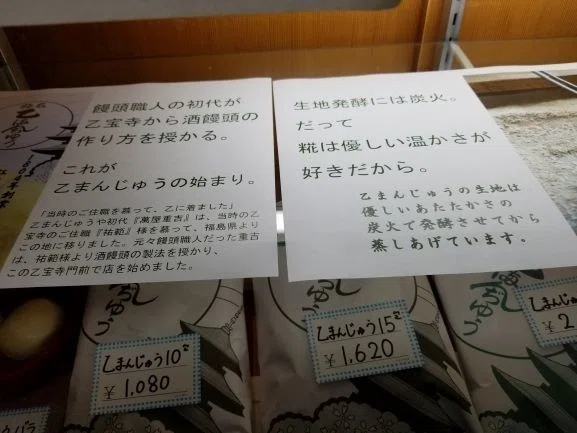 饅頭職人の初代が
乙宝寺から酒饅頭の
作り方を授かる。
これが
乙まんじゅうの始まり。
「当時のご住職を慕って、乙に着ました」
乙まんじゅうや初代『萬屋重吉』は、当時の乙
宝寺のご住職『祐範』様を慕って、福島県より
この地に移りました。元々饅頭職人だった重吉
は、祐範様より酒饅頭の製法を授かり、
この乙宝寺門前で店を始めました。
生地発酵には炭火。
だって
糀は優しい温かさが
好きだから。
乙まんじゅうの生地は
優しいあたたかさの
炭火で発酵させてから
蒸しあげています。
乙まんじゅう10個
¥1,080
乙まんじゅう15個
¥1,620
乙まんじゅう
¥2
バラ